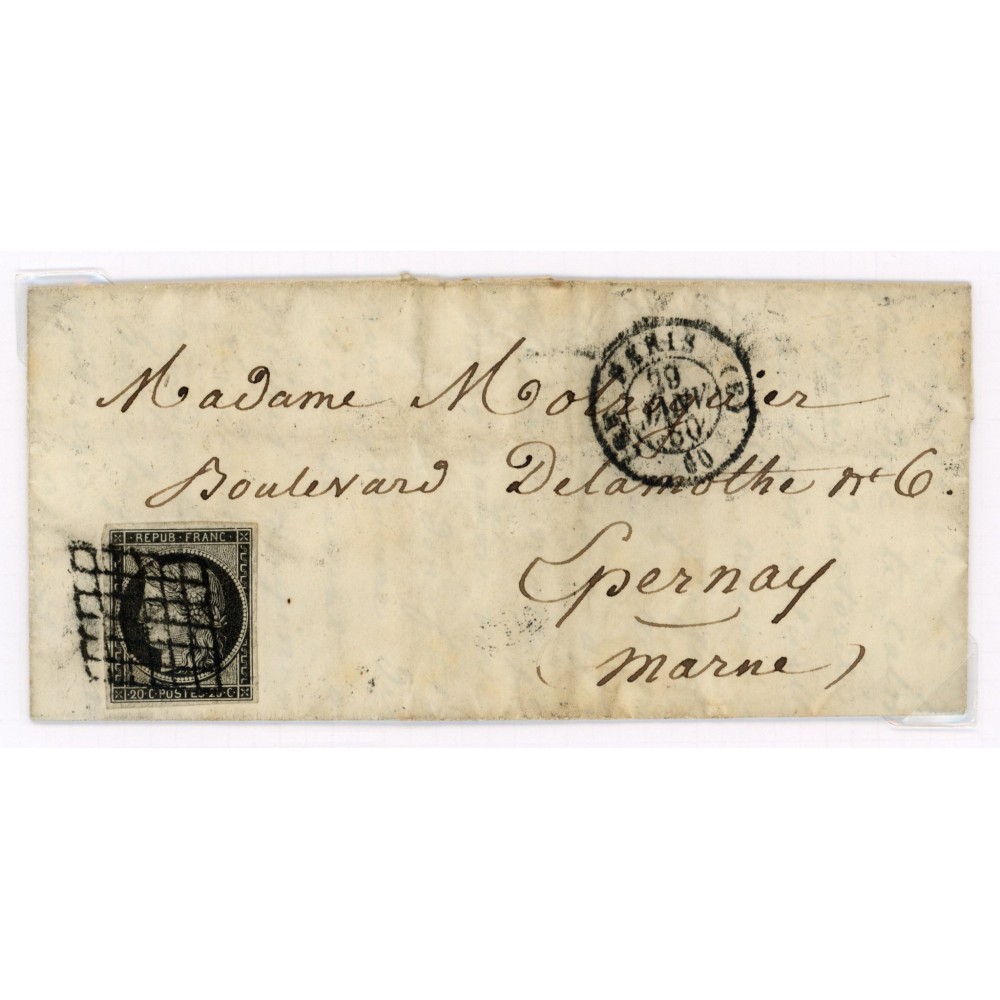 Madame
Boulevard Delamothe nº 6.
Epernay
(Marne)
PARIS
JANV.
50
60
REPUB·FRANC·
20·C·POSTES·20·C